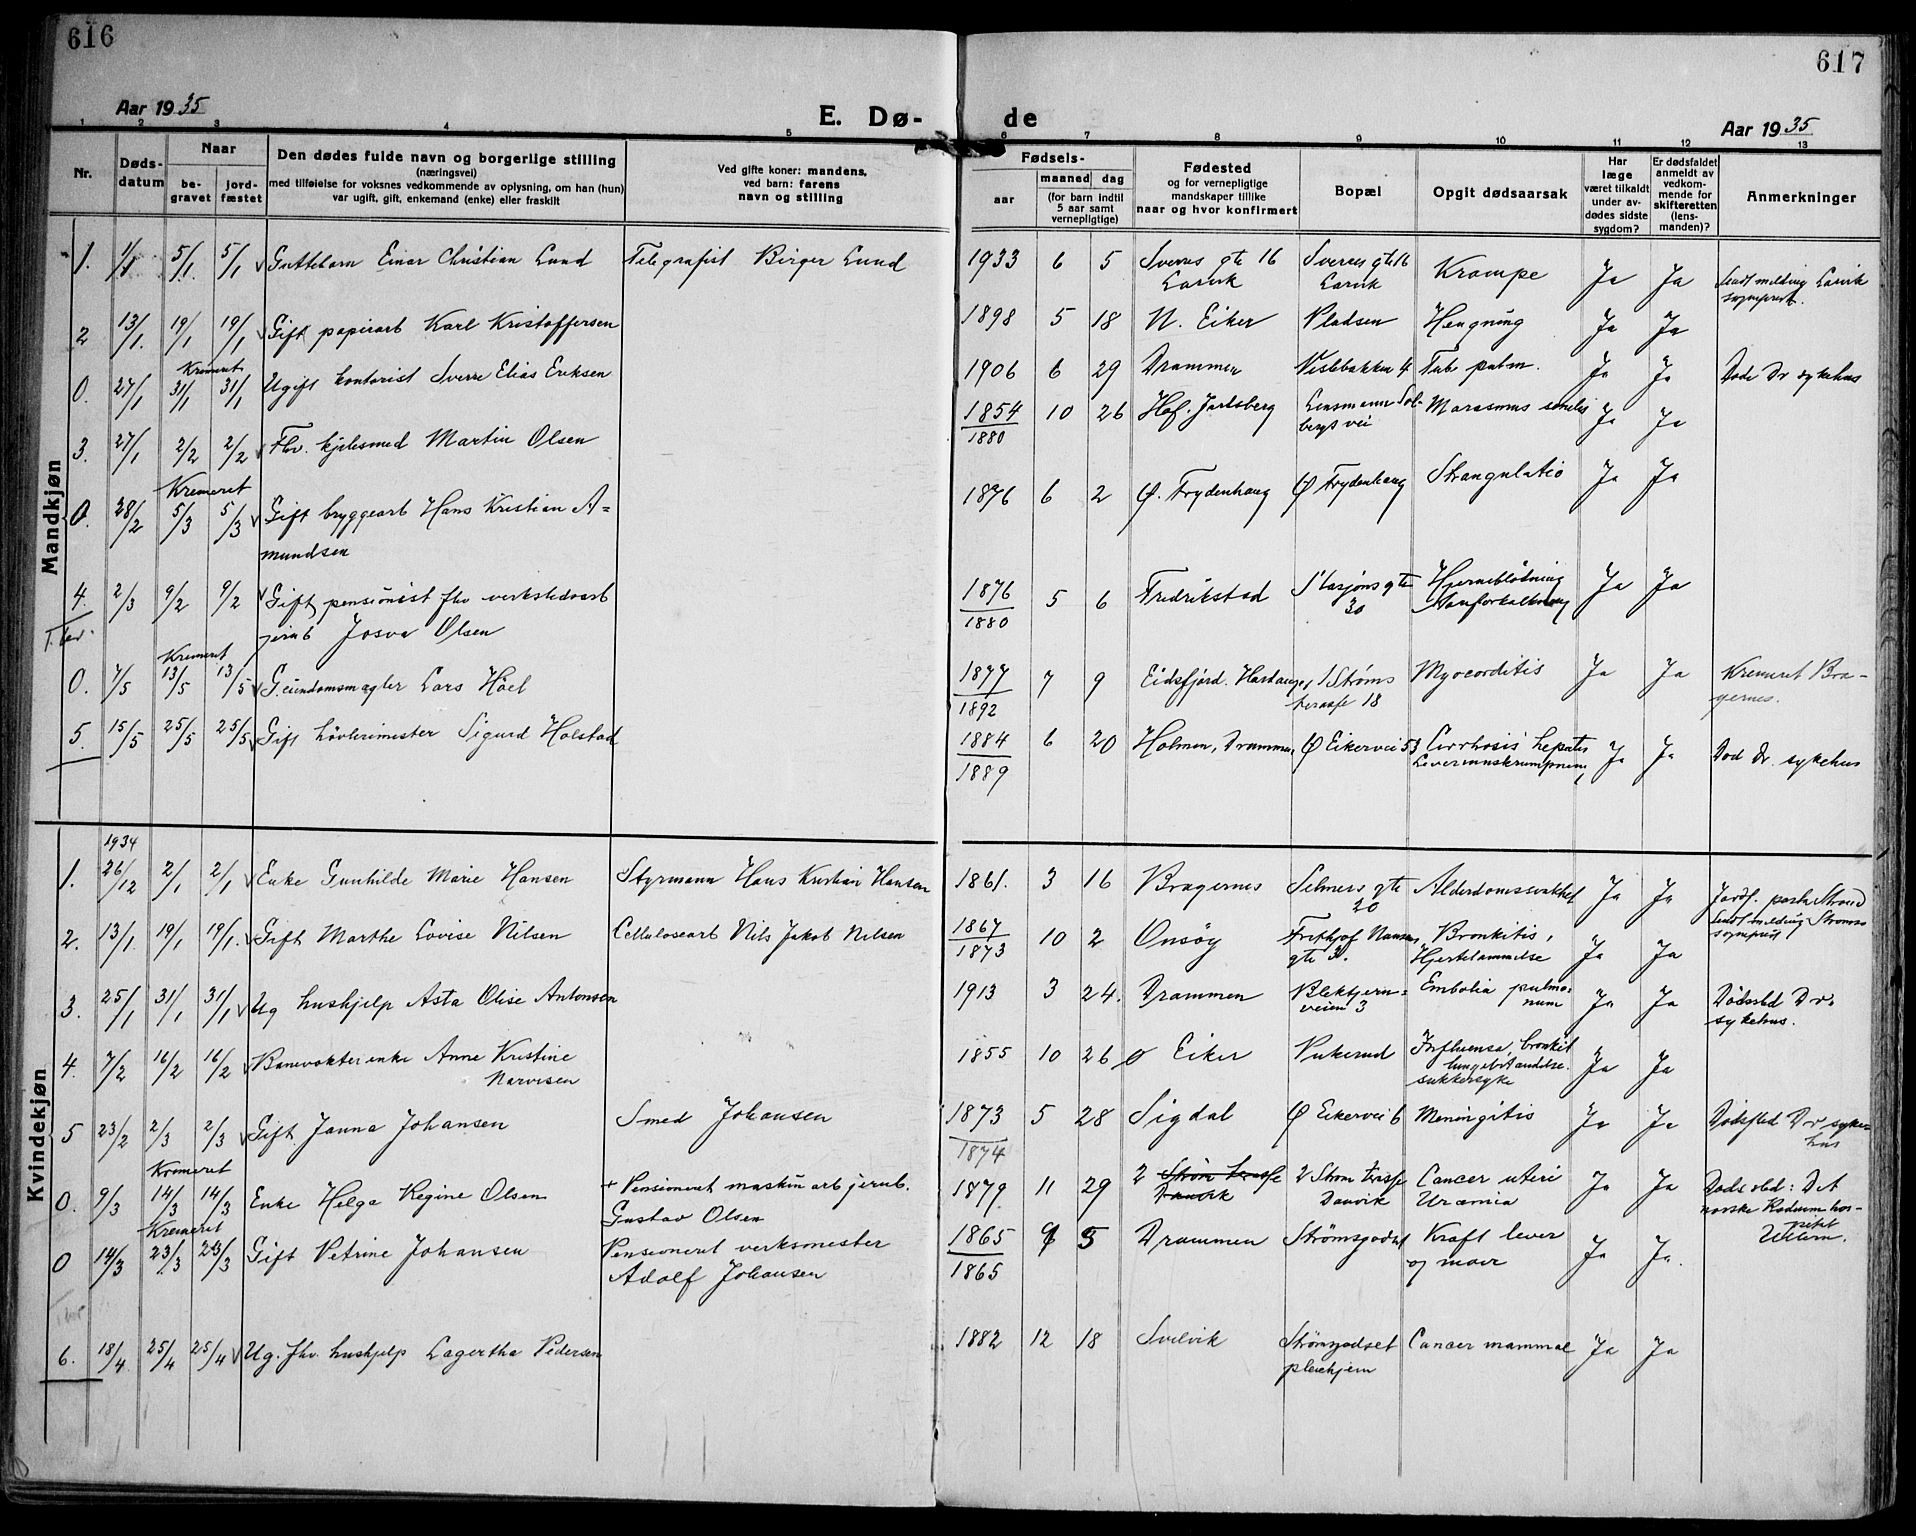 616
617
Aar 1935
E. Dø-
de
Aar 1935
1 2 3 4 5 6 7 8 9 10 11 12 13
Nr.
Døds-
datum
Naar
be-
gravet
jord-
fæstet
Den dødes fulde navn og borgerlige stilling
(næringsvei)
med tilføielse for voksnes vedkommende av oplysning, om han (hun)
var ugift, gift, enkemand (enke) eller fraskilt
Ved gifte koner: mandens,
ved barn: farens
navn og stilling
Fødsels-
aar
maaned dag
(for barn indtil
5 aar samt
vernepligtige)
Fødested
og for vernepligtige
mandskaper tillike
naar og hvor konfirmert
Bopæl
Opgit dødsaarsak
Har
læge
været tilkaldt
under av-
dødes sidste
sygdom?
Er dødsfaldet
anmeldt av
vedkom-
mende for
skifteretten
(lens-
manden)?
Anmerkninger
Mandkjøn
1. 1/1 5/1 5/1 Guttebarn Einar Christian Lund Telegrafist Birger Lund 1933 6 5 Sverres gte 16 Larvik Sverres gte 16 Larvik Krampe Ja Ja Sendt melding Larvik sogneprest.
2 13/1 19/1 19/1 Gift papirarb Karl Kristoffersen 1898 5 18 N. Eiker Pladsen Hengning Ja Ja
Kremert
0. 27/1 31/1 31/1 Ugift kontorist Sverre Elias Eriksen 1906 6 29 Drammen 4 Tub. pulm. Ja Ja Døde Dr sykehus
3. 27/1 2/2 2/2 Fhv. kjelesmed Martin Olsen 1854 1880 10 26 Hof. Jarlsberg Lensmann Sol-
bergs vei Marasmus senilis Ja Ja
Kremeret
0. 28/2 5/3 5/3 Gift bryggearb Hans Kristian A=
mundsen 1876 6 2 Ø. Frydenhaug Ø Frydenhaug Strangulatio Ja Ja
4. 2/3 9/2 9/2 Gift pensionist fhv verkstedsarb
jernb Josva Olsen 1876 1880 5 6 Fredrikstad Stasjons gte 30 Hjerneblødning Ja Ja
Kremeret
0. 7/5 13/5 13/5 G. eiendomsmægler Lars Hoel 1877 1892 7 9 Eidsfjord. Hardanger 1 Strøms
terasse 18 Myocarditis Ja Ja Kremeret Bra-
gernes.
5. 15/5 25/5 25/5 Gift høvlerimester Sigurd Holstad 1884 1889 6 20 Holmen, Drammen Ø Eikervei 53 Cirrhosis hepatis Ja Ja Død Dr. sykehus
Kvindekjøn
1934
1. 26/12 2/1 2/1 Enke Gunhilde Marie Hansen Styrmann Hans Kristian Hansen 1861. 3 16 Bragernes Selmers gte 20 Alderdomssvakhet Ja Ja Jordf.
2. 13/1 19/1 19/1. Gift Marthe Lovise Nilsen Cellulosearb Nils Jakob Nilsen 1867 1873 10 2 Onsøy Fritjhof Nansens
gte 3. Bronkitis,
Hjertelammelse Ja Ja Sendt melding Strømsø sogneprest
3. 25/1 31/1 31/1 Ug hushjelp Asta Olise Antonsen 1913 3 24. Drammen Blektjern=
veien 3 Embolia pulmo-
num Ja Ja Dødssted Dr.
sykehus.
4. 7/2 16/2 16/2 Banevokterenke Anne Kristine
Narvesen 1855 10 26 Ø Eiker Pukerud Influensa, bronkit
lungebetændelse.
sukkersyke Ja Ja
5 23/2 2/3 2/3 Gift. Janna Johansen Smed Johansen 1873 1874 5 28 Sigdal Ø Eikervei 6 Meningitis Ja Ja Dødssted Dr syke-
hus
Kremeret
0. 9/3 14/3 14/3 Enke Helga Regine Olsen + Pensioneret maskinarb jernb.
Gustav Olsen 1879 11 29 2 Strøm terasse
Danvik 2 Strøm terasse
Danvik Cancer uteri
Uræmia Ja Ja Dødssted: Det
norske Radium hos-
pital
Ullern.
Kremeret
0 14/3 23/3 23/3 Gift Petrine Johansen Pensioneret verksmester
Adolf Johansen 1865 1865 9 5 Drammen Strømsgodset Kræft lever
og mave Ja Ja.
6. 18/4 25/4 25/4 Ug. fhv. hushjelp Lagertha Pedersen 1882 12 18 Svelvik Strømsgodset
pleiehjem Cancer mammae Ja Ja